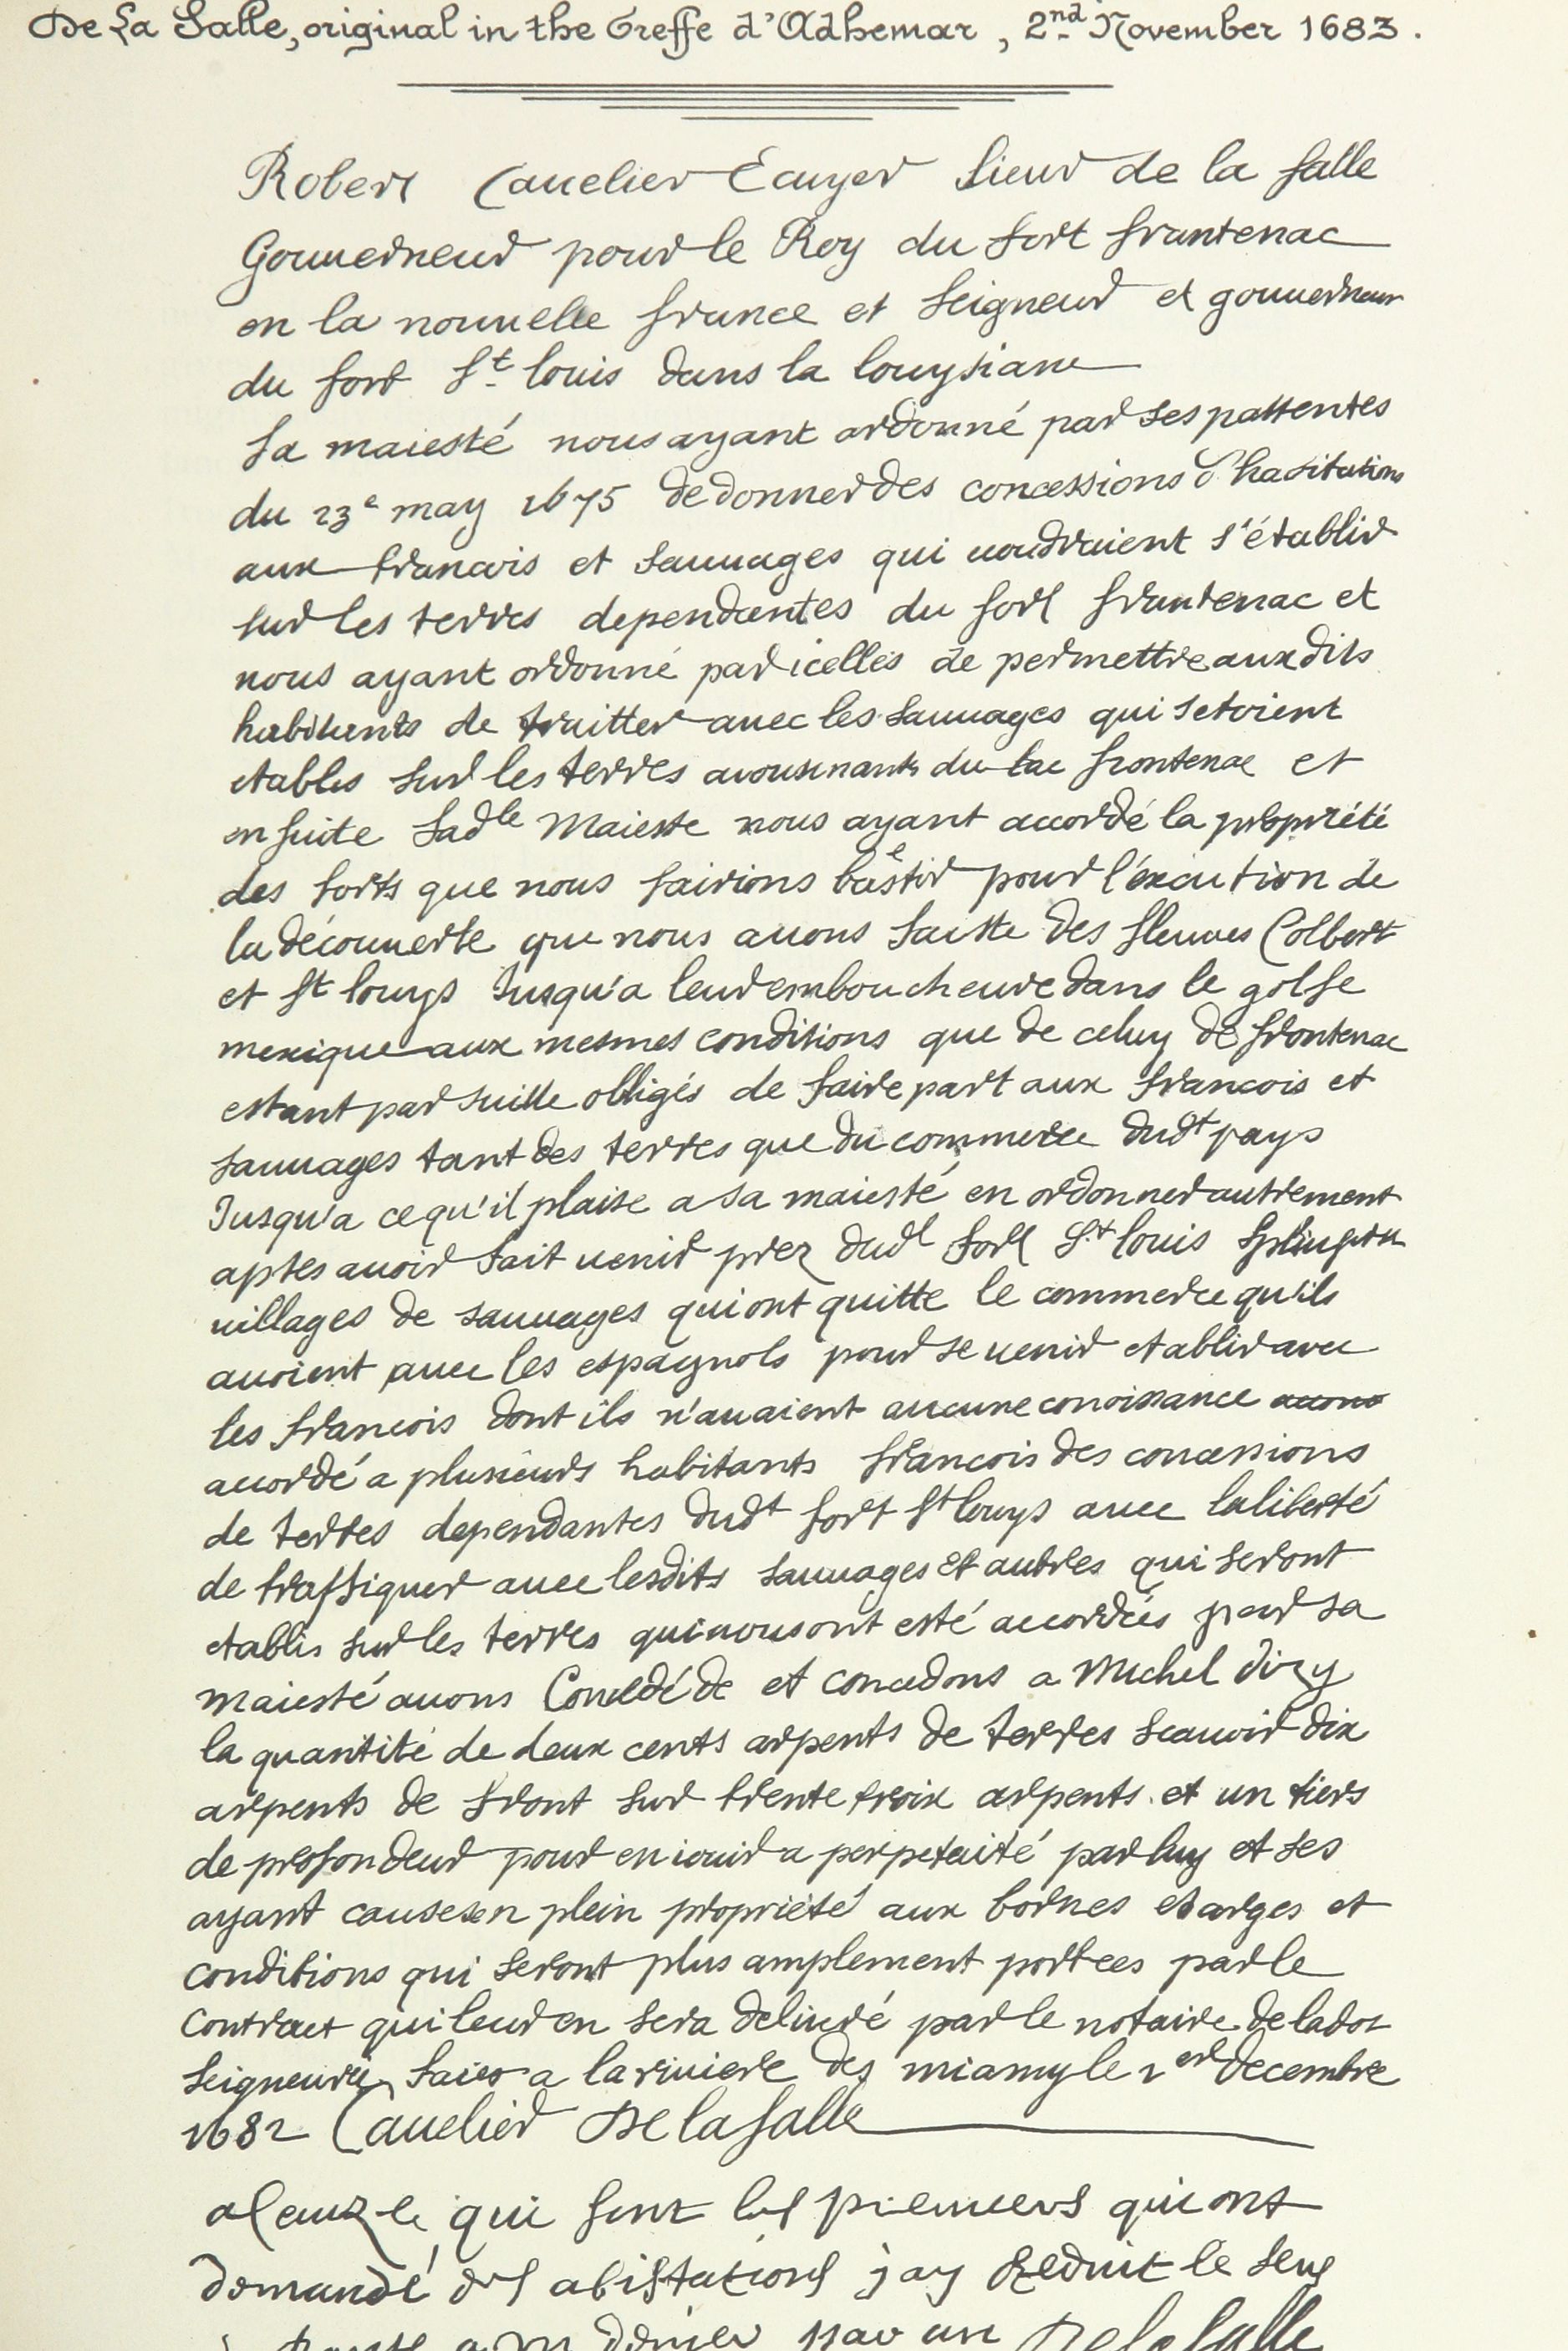 De La Salle, original in the Greffe d'Adhemar, 2nd November 1683.
Robert Cauelier Ecuyer Sieur de la Salle
Gouuerneur pour le Roy du fort frontenac
en la nouuelle france et Seigneur et gouuerneur
du fort St louis dans la louysiane
Sa maiesté nous ayant ordonné par ses pattentes
du 23e may 1675 de donner des concessions d'habitations
aux francois et sauuages qui uoudraient s'établir
sur les terres dependantes du fort frontenac et
nous ayant ordonné par icelles de permettre aux dits
habitants de traitter auec les sauuages qui setoient
etablis sur les terres auoisinants du lac frontenac et
en suite sadle Maieste nous ayant accordé la propriété
des forts que nous fairions bastir pour l'éxecution de
la découuerte que nous auons faitte des fleuues Colbert
et St louys Jusqu'a leur emboucheure dans le golfe
mexique aux mesmes conditions que de celuy de frontenac
estant par suitte obligés de faire part aux francois et
sauuages tant des terres que du commerce dudt pays
Jusqu'a ce qu'il plaise a sa maiesté en ordonner autrement
apres auoir fait uenir prez dudt fort St louis
uillages de sauuages qui ont quitte le commerce qu'ils
auoient auec les espagnols pour se uenir etablir auec
les francois dont ils n'auaient aucune conoissance auons
accordé a plusieurs habitants francois des concessions
de terres dependantes dudt fort St louys auec la liberté
de traffiquer auec lesdits sauuages et autres qui seront
etablis sur les terres qui nous ont esté accordées par sa
maiesté auons Concédé de et concedons a Michel dizy
la quantité de deux cents arpents de terres scauoir dix
arpents de front sur trente trois arpents et un tiers
de profondeur pour en iouir a perpetuité par luy et ses
ayant causes en plein propriété aux bornes charges et
conditions qui seront plus amplement portées par le
contract qui leur en sera deliuré par le notaire de ladt
seigneurie, faict a la riuiere des miamy le 1er decembre
1682 Cauelier De la Salle
qui sont les premiers qui ont
demandé des abistations j'ay reduit le sens
denier par an De la Salle